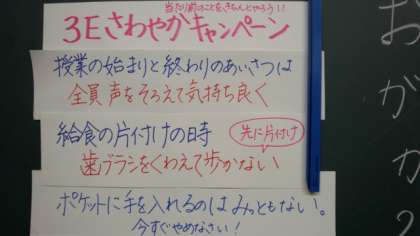 当たり前のことをきちんとやろう!!
3Eさわやかキャンペーン
授業の始まりと終わりのあいさつは
全員声をそろえて気持ち良く
給食の片付けの日時
先に片付け
歯ブラシをくわえて歩かない
ポケットに手を入れるのはみっともない!。
今すぐやめなさい!
おがか